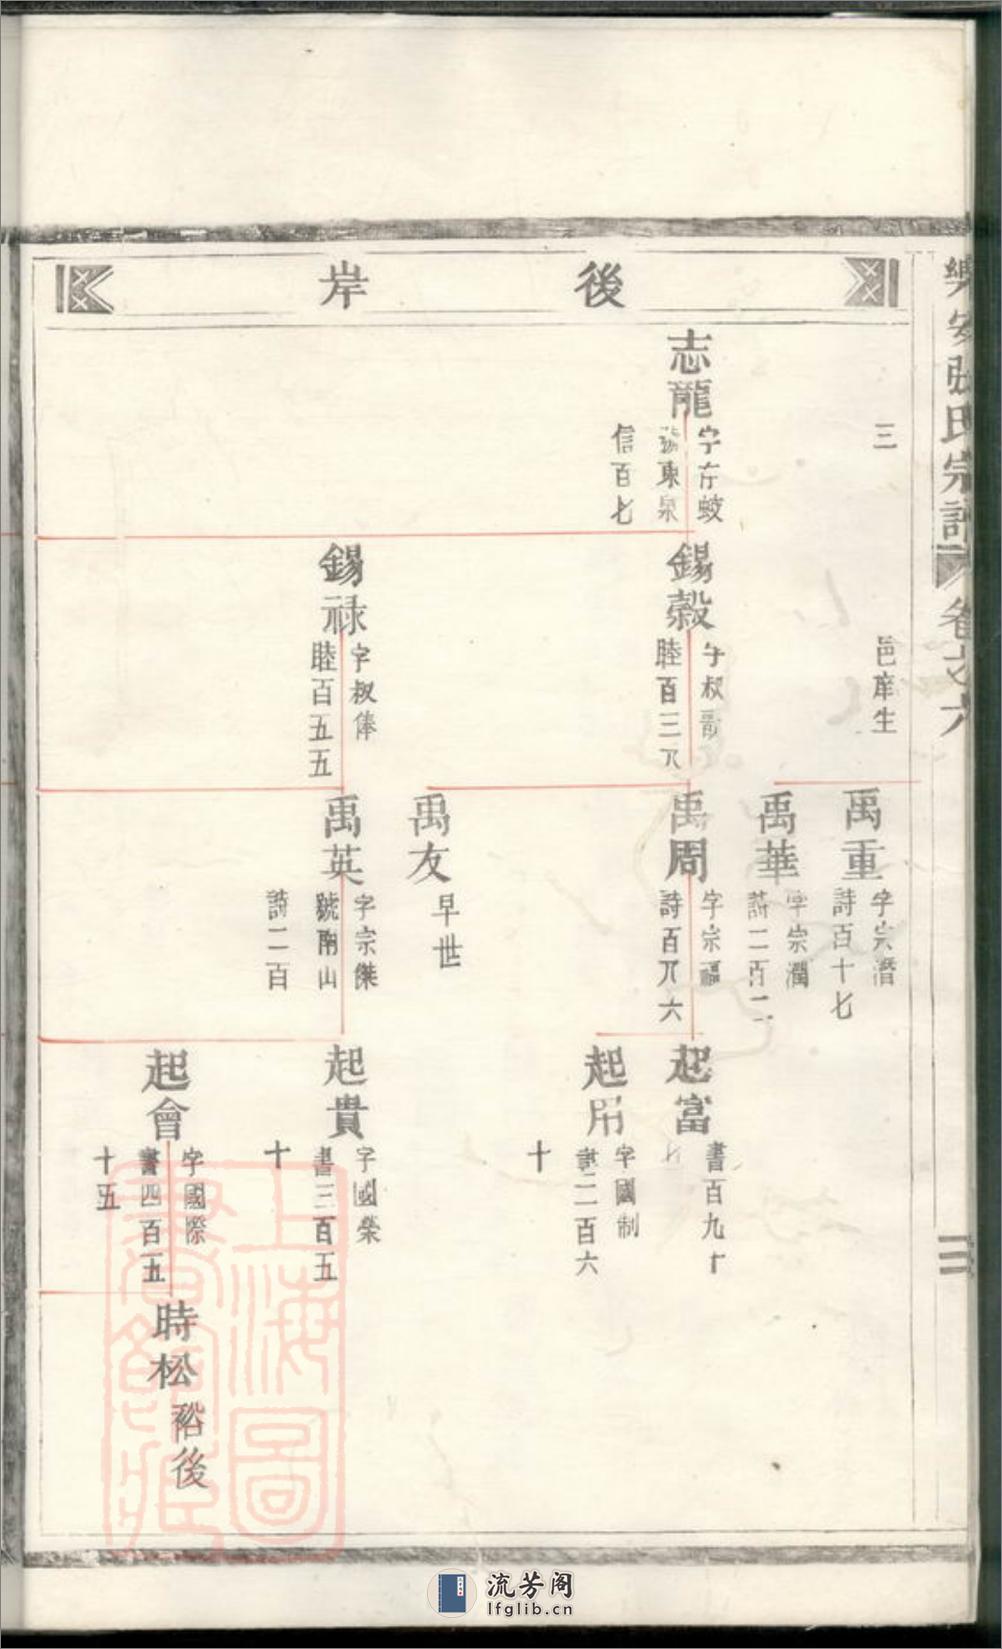 樂安張氏宗譜
卷之六
後岸
三
邑庠生
禹重
字宗潛
詩百十七
禹華
字宗潤
詩二百二
志龍
字存蛟
號東泉
信百七
錫穀
字叔
睦百三八
禹周
字宗福
詩百八六
起富
書百九十
七
起用
字國制
書二百六
十
禹友
早世
錫祿
字叔俸
睦百五五
禹英
字宗傑
號南山
詩二百
起貴
字國榮
書三百五
十
起會
字國際
書四百五
十五
時松
裕後
上海圖書館藏
流芳阁
lfglib.cn